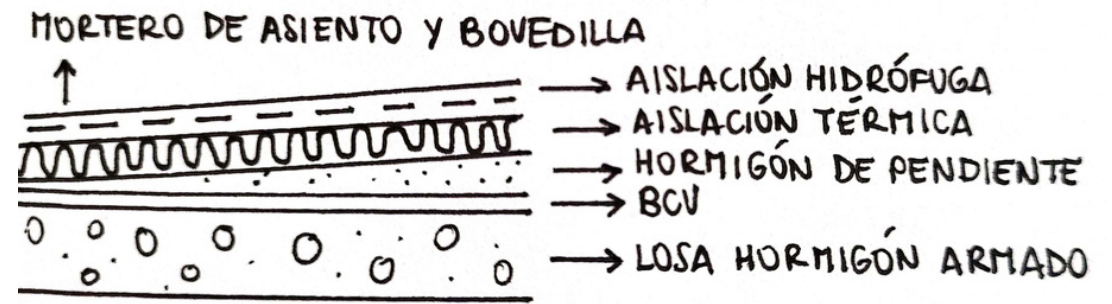 MORTERO DE ASIENTO Y BOVEDILLA
AISLACIÓN HIDRÓFUGA
AISLACIÓN TÉRMICA
HORMIGÓN DE PENDIENTE
BCV
LOSA HORMIGÓN ARMADO